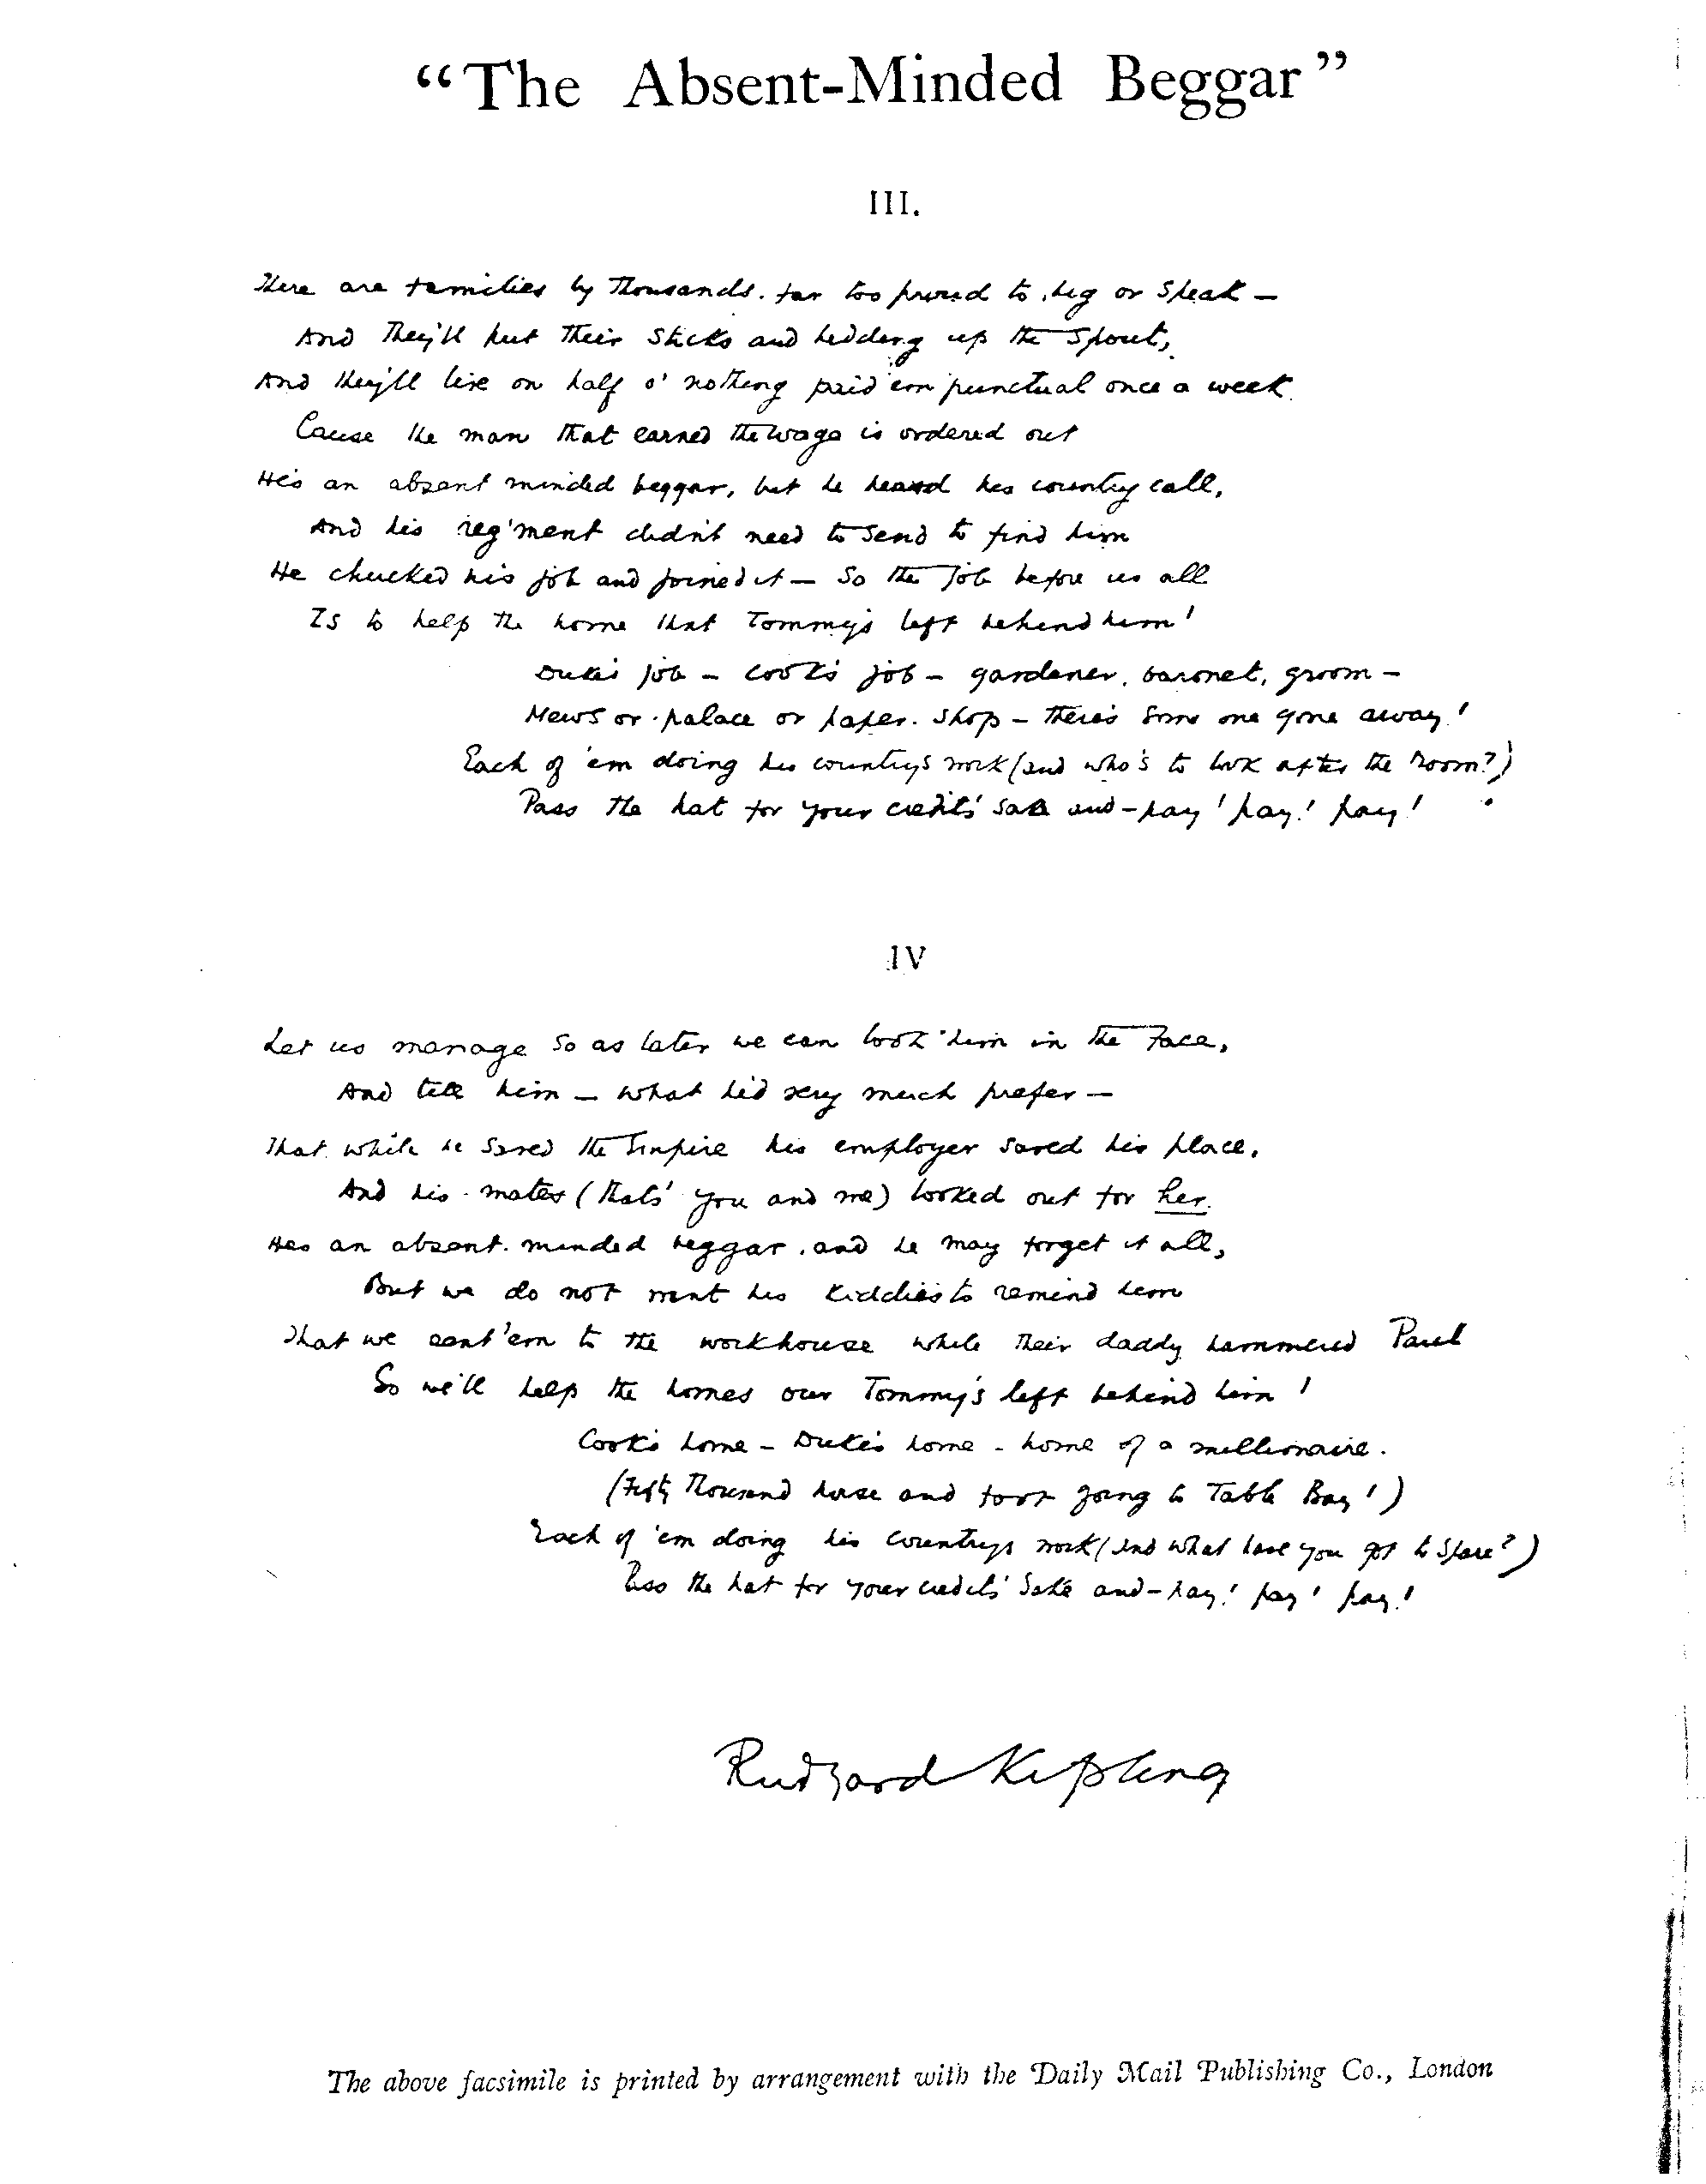 "The Absent-Minded Beggar"
III.
There are families by thousands. far too proud to beg or speak —
And they'll put their sticks and bedding up the spout,
And they'll live on half o' nothing paid 'em punctual once a week.
Cause the man that earned the wage is ordered out
He's an absent minded beggar, but he heard his country call,
And his reg'ment didn't need to send to find him
He chucked his job and joined it — So the job before us all
Is to help the home that Tommy's left behind him!
Duke's job – cook's job – gardener, baronet, groom –
Mews or palace or paper. shop – there's some one gone away!
Each of 'em doing his country's work (and who's to look after the room?)
Pass the hat for your credit's sake and – pay! pay! pay!
IV
Let us manage so as later we can look him in the face,
And tell him – what he'd very much prefer –
That while he saved the Empire his employer saved his place,
And his mates (that's you and me) looked out for her.
He's an absent. minded beggar, and he may forget it all,
But we do not want his kiddies to remind him
That we sent 'em to the workhouse while their daddy hammered Paul
So we'll help the homes our Tommy's left behind him!
Cook's home – Duke's home – home of a millionaire.
(Fifty thousand horse and foot going to Table Bay!)
Each of 'em doing his country's work (and what have you got to spare?)
Pass the hat for your credit's sake and – pay! pay! pay!
Rudyard Kipling
The above facsimile is printed by arrangement with the Daily Mail Publishing Co., London